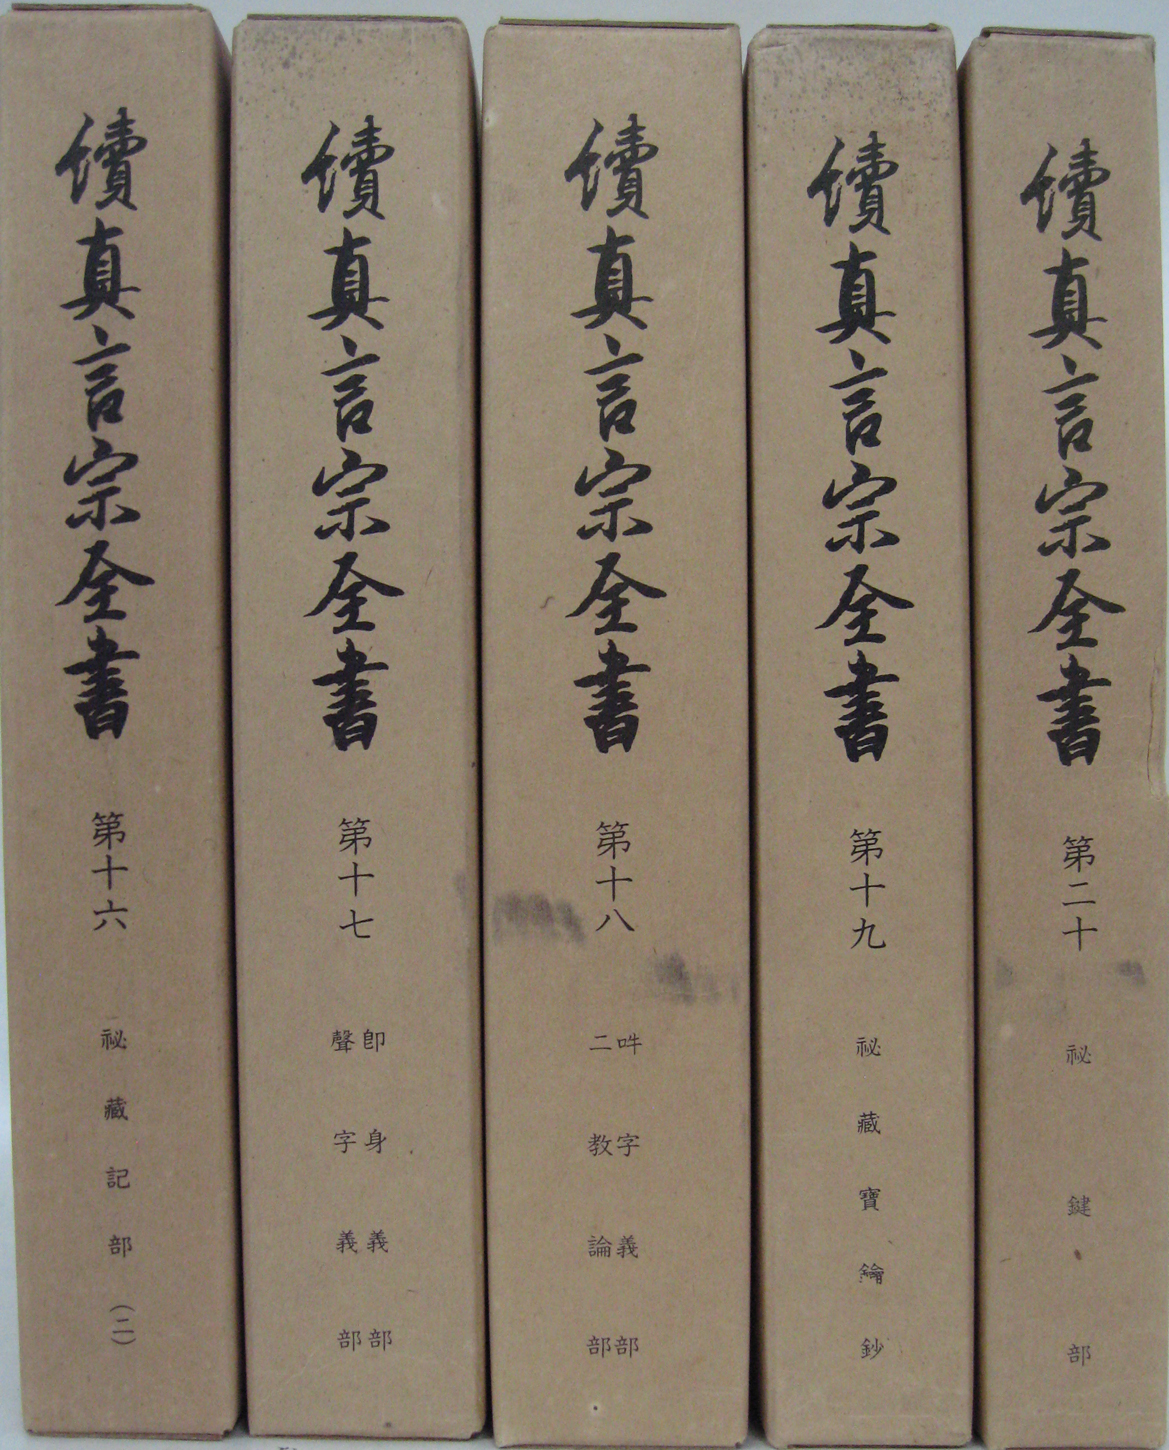 續真言宗全書
第十六
祕藏記部（二）
續真言宗全書
第十七
卽身義部
聲字義部
續真言宗全書
第十八
吽字義部
二教論部
續真言宗全書
第十九
祕藏寶鑰鈔
續真言宗全書
第二十
祕鍵部